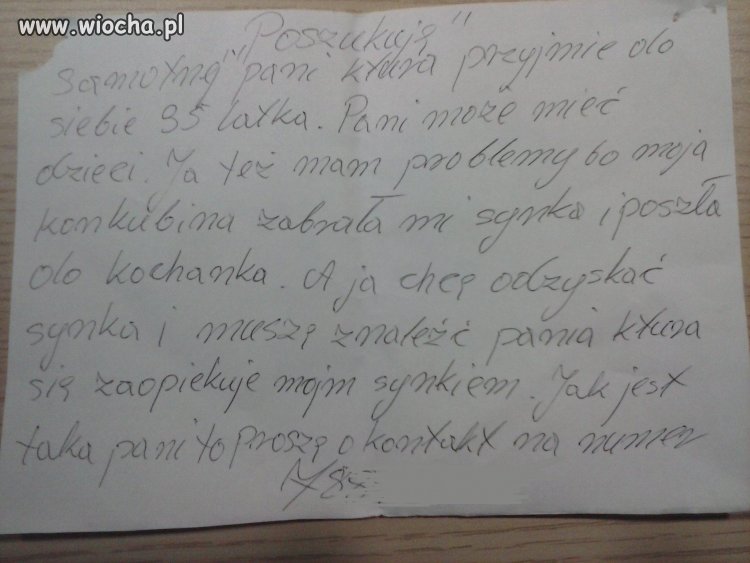 www.wiocha.pl
"Poszukuję"
samotną pani ktura przyjmie do
siebie 35 latka. Pani może mieć
dzieci. Ja też mam problemy bo moja
konkubina zabrała mi synka i poszła
do kochanka. A ja chcę odzyskać
synka i muszę znaleźć pania ktura
się zaopiekuje mojm synkiem. Jak jest
taka pani to proszę o kontakt na numer